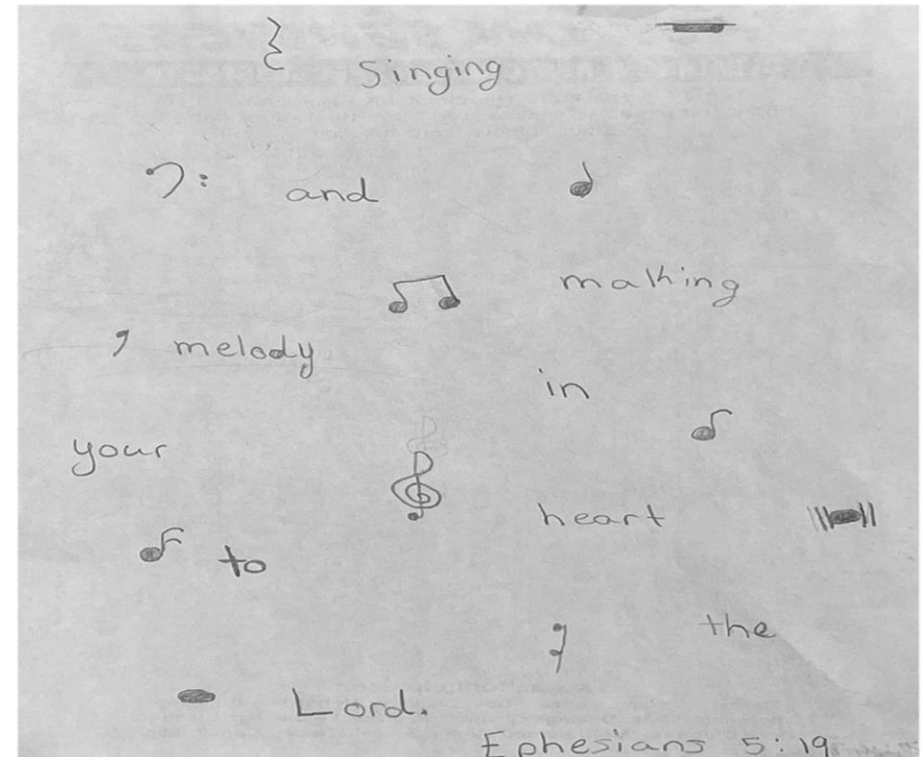 Singing
and
making
melody
in
your
heart
to
the
Lord.
Ephesians 5:19